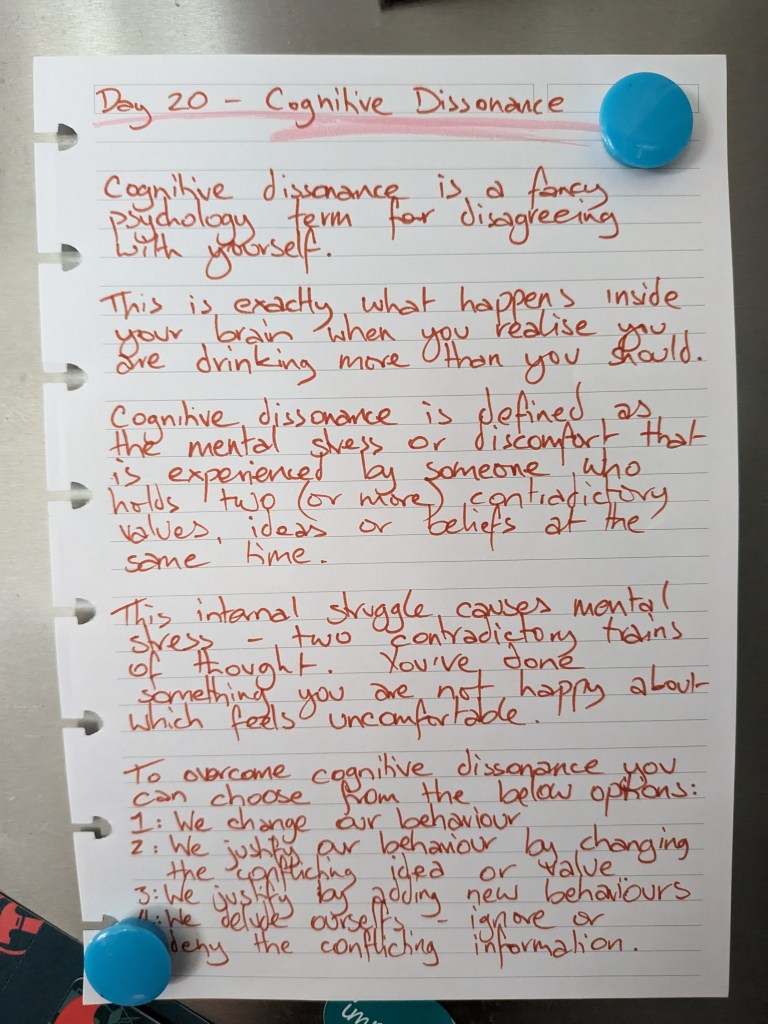 Day 20 - Cognitive Dissonance
Cognitive dissonance is a fancy
psychology term for disagreeing
with yourself.
This is exactly what happens inside
your brain when you realise you
are drinking more than you should.
Cognitive dissonance is defined as
the mental stress or discomfort that
is experienced by someone who
holds two (or more) contradictory
values, ideas or beliefs at the
same time.
This internal struggle causes mental
stress - two contradictory trains
of thought. You've done
something you are not happy about
which feels uncomfortable.
To overcome cognitive dissonance you
can choose from the below options:
1: We change our behaviour
2: We justify our behaviour by changing
the conflicting idea or value
3: We justify by adding new behaviours
4: We delude ourselfs - ignore or
deny the conflicting information.
im